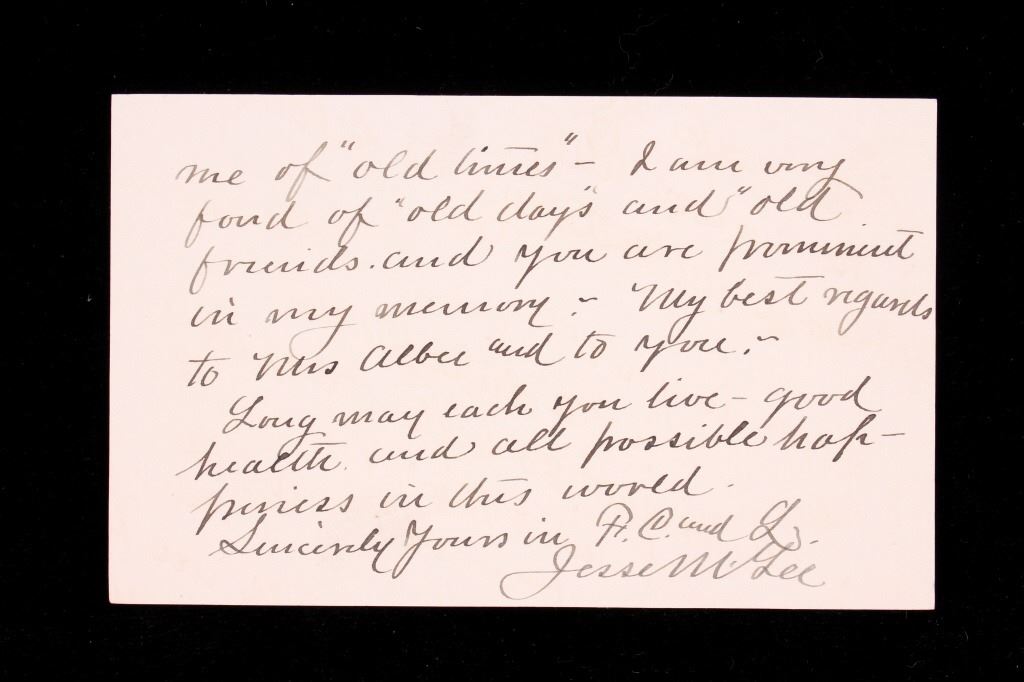 me of "old times" - I am very
fond of "old days" and "old
friends. and you are prominent
in my memory - My best regards
to Mrs Albee and to you. -
Long may each you live - good
health. and all possible hap-
piness in this world.
Sincerely Yours in F. C. and L.
Jesse M. Lee